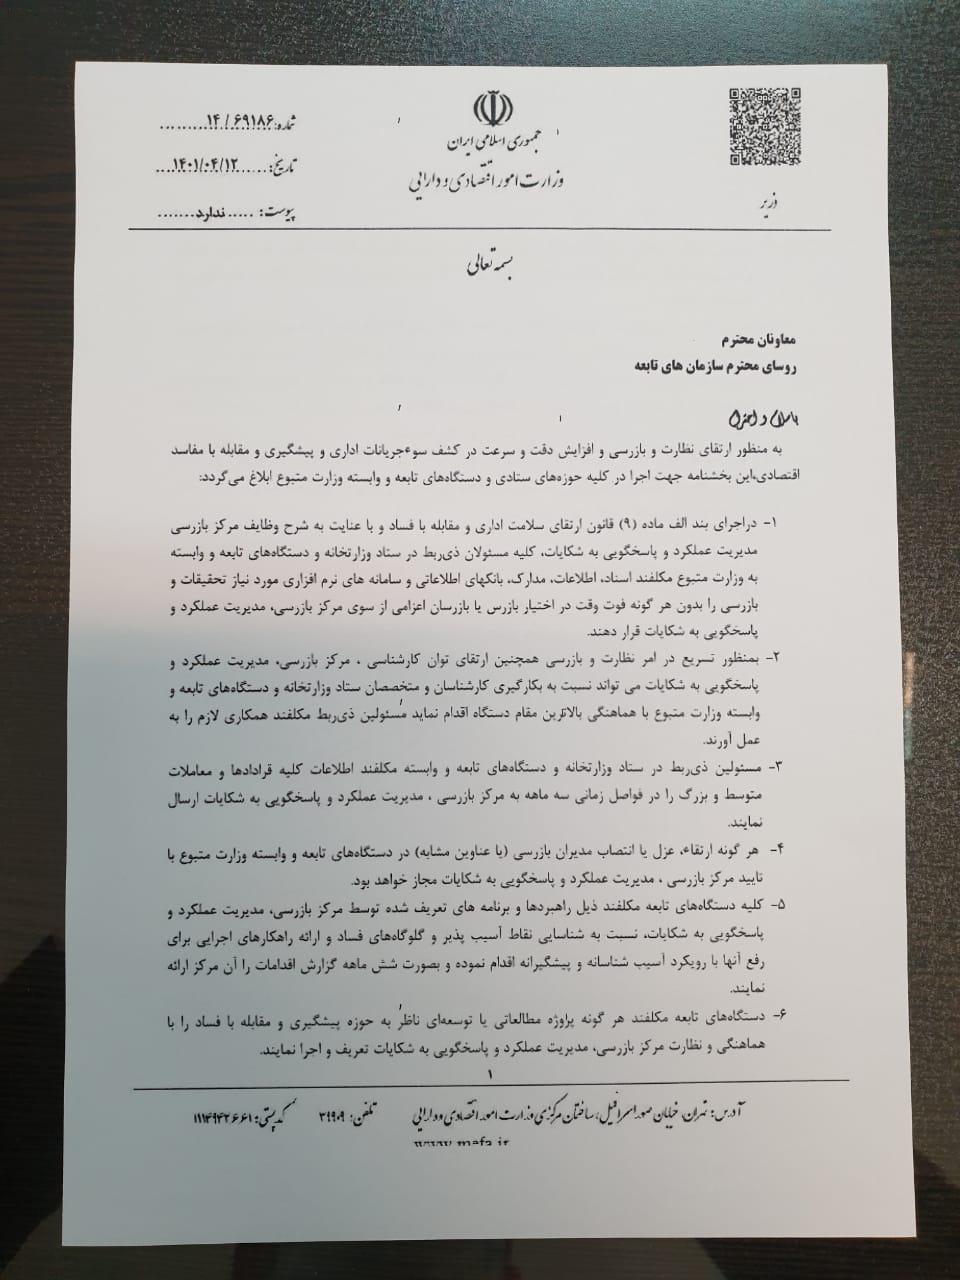 جمهوری اسلامی ایران
وزارت امور اقتصادی و دارایی
وزیر
شماره: ۱۴/۶۹۱۸۶
تاریخ: ۱۴۰۱/۰۴/۱۲
پیوست: ندارد
بسمه تعالی
معاونان محترم
روسای محترم سازمان های تابعه
باسلام و احترام
به منظور ارتقای نظارت و بازرسی و افزایش دقت و سرعت در کشف سوءجریانات اداری و پیشگیری و مقابله با مفاسد
اقتصادی،این بخشنامه جهت اجرا در کلیه حوزه‌های ستادی و دستگاه‌های تابعه و وابسته وزارت متبوع ابلاغ می‌گردد:
۱- دراجرای بند الف ماده (۹) قانون ارتقای سلامت اداری و مقابله با فساد و با عنایت به شرح وظایف مرکز بازرسی
مدیریت عملکرد و پاسخگویی به شکایات، کلیه مسئولان ذی‌ربط در ستاد وزارتخانه و دستگاه‌های تابعه و وابسته
به وزارت متبوع مکلفند اسناد، اطلاعات، مدارک، بانکهای اطلاعاتی و سامانه های نرم افزاری مورد نیاز تحقیقات و
بازرسی را بدون هر گونه فوت وقت در اختیار بازرس یا بازرسان اعزامی از سوی مرکز بازرسی، مدیریت عملکرد و
پاسخگویی به شکایات قرار دهند.
۲- بمنظور تسریع در امر نظارت و بازرسی همچنین ارتقای توان کارشناسی ، مرکز بازرسی، مدیریت عملکرد و
پاسخگویی به شکایات می تواند نسبت به بکارگیری کارشناسان و متخصصان ستاد وزارتخانه و دستگاه‌های تابعه و
وابسته وزارت متبوع با هماهنگی بالاترین مقام دستگاه اقدام نماید مسئولین ذی‌ربط مکلفند همکاری لازم را به
عمل آورند.
۳- مسئولین ذی‌ربط در ستاد وزارتخانه و دستگاه‌های تابعه و وابسته مکلفند اطلاعات کلیه قرادادها و معاملات
متوسط و بزرگ را در فواصل زمانی سه ماهه به مرکز بازرسی ، مدیریت عملکرد و پاسخگویی به شکایات ارسال
نمایند.
۴- هر گونه ارتقاء، عزل یا انتصاب مدیران بازرسی (یا عناوین مشابه) در دستگاه‌های تابعه و وابسته وزارت متبوع با
تایید مرکز بازرسی ، مدیریت عملکرد و پاسخگویی به شکایات مجاز خواهد بود.
۵- کلیه دستگاه‌های تابعه مکلفند ذیل راهبردها و برنامه های تعریف شده توسط مرکز بازرسی، مدیریت عملکرد و
پاسخگویی به شکایات، نسبت به شناسایی نقاط آسیب پذیر و گلوگاه‌های فساد و ارائه راهکارهای اجرایی برای
رفع آنها با رویکرد آسیب شناسانه و پیشگیرانه اقدام نموده و بصورت شش ماهه گزارش اقدامات را آن مرکز ارائه
نمایند.
۶- دستگاه‌های تابعه مکلفند هر گونه پراوژه مطالعاتی یا توسعه‌ای ناظر به حوزه پیشگیری و مقابله با فساد را با
هماهنگی و نظارت مرکز بازرسی، مدیریت عملکرد و پاسخگویی به شکایات تعریف و اجرا نمایند.
۱
آدرس: تهران، خیابان صوراسرافیل، ساختمان مرکزی وزارت امور اقتصادی و دارایی تلفن: ۳۹۹۰۹ کد پستی: ۱۱۱۴۹۴۳۶۶۱
www.mefa.ir